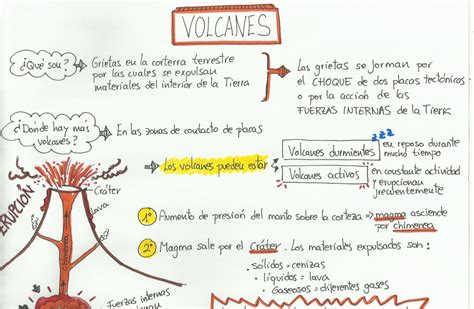 VOLCANES
¿Qué son?
Grietas en la corterra terrestre
por las cuales se expulsan
materiales del interior de la Tierra
Las grietas se forman por
el CHOQUE de dos placas tectónicas
o por la acción de las
FUERZAS INTERNAS de la Tierra
¿Donde hay más
volcanes?
En las zonas de contacto de placas
Los volcanes pueden estar
zzz
Volcanes durmientes
en reposo durante
mucho tiempo
Volcanes activos
en constante actividad
y erupcionan
frecuentemente
Cráter
lava
ERUPCIÓN
chimenea
1º Aumento de presión del manto sobre la corteza ⇒ magma asciende
por chimenea
2º Magma sale por el Cráter. Los materiales expulsados son:
· sólidos = cenizas
· líquidos = lava
· Gaseosos = diferentes gases
Fuerzas internas